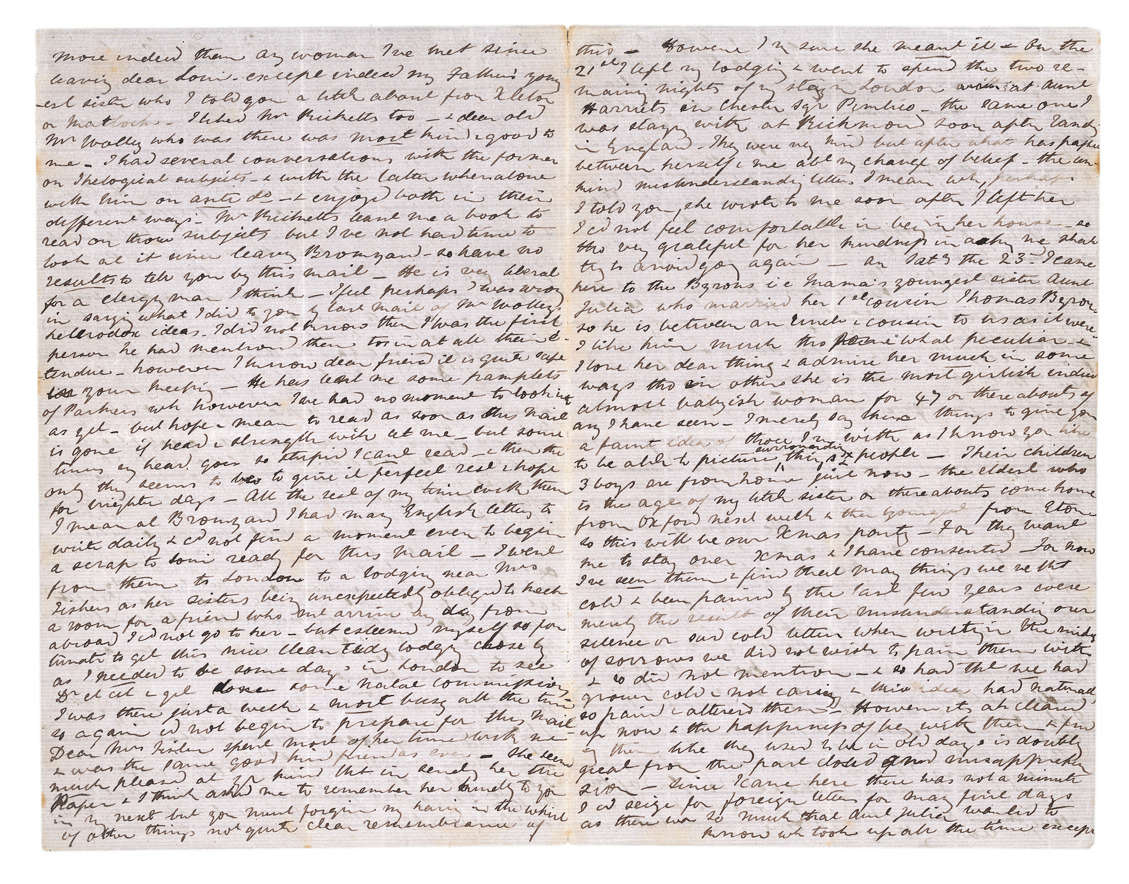 more indeed than any woman I've met since
leaving dear Loui. except indeed my Father's young
-est sister who I told you a little about from
or Matlocks - I liked Mr Ricketts too - & dear old
Mr Wolley who was there was most kind & good to
me - I had several conversations with the former
on Thelogical subjects - & with the latter when alone
with him on ante do - & enjoyed both in their
different ways - Mr Ricketts leant me a book to
read on those subjects but I've not had time to
look at it since leaving Bromyard - so have no
results to tell you by this mail - He is very liberal
for a clergyman I think - I feel perhaps I was wrong
in saying what I did to you by last mail of Mr Wolley's
heterodox ideas. I did not know then I was the first
person he had mentioned them to in at all their
tendue - however I know dear friend it is quite safe
in your keeping - He has lent me some pamplets
of Parkers wh however I've had no moment to look in
as yet - but hope & mean to read as soon as this mail
is gone if head & strength with at me - but some
times my head goes so stupid I cant read - & then the
only thing seems to be to give it perfect rest & hope
for brighter days - All the rest of my time with them
I mean at Bromyard I had many English letters to
write daily & cd not find a moment even to begin
a scrap to Loui ready for this Mail - I went
from them to London to a lodging near Mrs
Fishers as her sisters being unexpectedly obliged to keep
a room for a friend who arrive any day from
abroad I cd not go to her - but esteemed myself so for
tunate to get this nice clean tidy lodging close by
as I needed to be some days in London to see
Dr & get done some Natal commissions
I was there just a week & most busy all the time
so again cd not begin to prepare for this Mail -
Dear Mrs Fisher spent most of her time with me
& was the same good kind friend as ever - She seemed
much pleased at yr kind tht in sending her the
Paper & I think asked me to remember her kindly to you
in my next but you must forgive my having in the whirl
of other things not quite clear remembrance of
this - However I'm sure she meant it - On the
21st I left my lodging & went to spend the two re-
maining nights of my stay in London at Aunt
Harriets in Chester Sqr Pimlico - the same one I
was staying with at Richmond soon after landing
in England. They were very kind but after what has passed
between herself & me abt my change of belief - the un
kind misunderstanding letters I mean wh perhaps
I told you, she wrote to me soon after I left her
I cd not feel comfortable in being in her house - so
tho very grateful for her kindness in asking me shall
try to avoid going again - On Satdy the 23rd I came
here to the Byrons i.e Mama's youngest sister Aunt
Julia who married her 1st cousin Thomas Byron
so he is between an Uncle & cousin to us as it were
I like him much tho somewhat peculiar &
I love her dear thing & admire her much in some
ways tho in others she is the most girlish indeed
almost babyish woman for 47 or thereabouts of
any I have seen - I merely say these things to give you
a faint idea of those I'm with as I know you like
to be able to picture surroundings & people - Their children
3 boys are from home just now - the eldest who
is the age of my little sister or thereabouts come home
from Oxford next week & the youngest from Eton
so this will be our Xmas party - For they want
me to stay over Xmas & I have consented - For now
I've seen them & find that many things we've tht
cold & been pained by the last few years were
merely the result of their misunderstanding our
silence or our cold letters when writing in the midst
of sorrows we did not wish to pain them with
& so did not mention - & so had tht we had
grown cold & not caring & this idea had naturally
so pained & altered them - However it's all cleared
up now & the happiness of being with them & find
ing them like they used to be in old days is doubly
great from the past clouds and misapprehen
sion - Since I came here there was not a minute
I cd seize for foreign letters for many first days
as there was so much that Aunt Julia wanted to
know wh took up all the time except